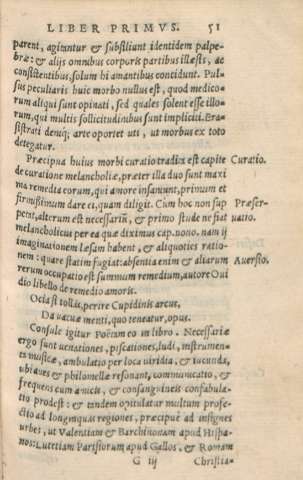 LIBER PRIMVS. 51
parent, agitantur & subsiliant identidem palpe-
bræ: & alijs omnibus corporis partibus illæsis, ac
consistentibus, solum hi amantibus concidunt. Pul-
sus peculiaris huic morbo nullus est, quod medico-
rum aliqui sunt opinati, sed quales solent esse illo-
rum, qui multis sollicitudinibus sunt impliciti. Era-
sistrati deniq; arte oportet uti, ut morbus ex toto
detegatur.
Præcipua huius morbi curatio tradita est capite Curatio.
de curatione melancholiæ, præter illa duo sunt maxi
ma remedia eorum, qui amore insaniunt, primum et
firmißimum dare ei, quam diligit. Cum hoc non sup Præser-
petit, alterum est necessariũ, & primo stude ne fiat uatio.
melancholicus per ea quæ diximus cap. nono. nam ij
imaginationem læsam habent, & aliquoties ratio-
nem: quare statim fugiat: absentia enim & aliarum Auersio.
rerum occupatio est summum remedium, autore Oui
dio libello de remedio amoris.
Ocia si tollis, perire Cupidinis arcus,
Da uacuæ menti, quo teneatur, opus.
Consule igitur Poëtam eo in libro. Necessariæ
ergo sunt uenationes, piscationes, ludi, instrumen-
ta musicæ, ambulatio per loca uiridia, & iucunda,
ubi aues & philomellæ resonant, communicatio, &
frequens cum amicis, & consanguineis confabula-
tio prodest: & tandem opitulatur multum profe-
ctio ad longinquas regiones, præcipuè ad insignes
urbes, ut Valentiam & Barchinonam apud Hispa-
nos: Lutetiam Parisiorum apud Gallos, & Romam
G iij Christia-